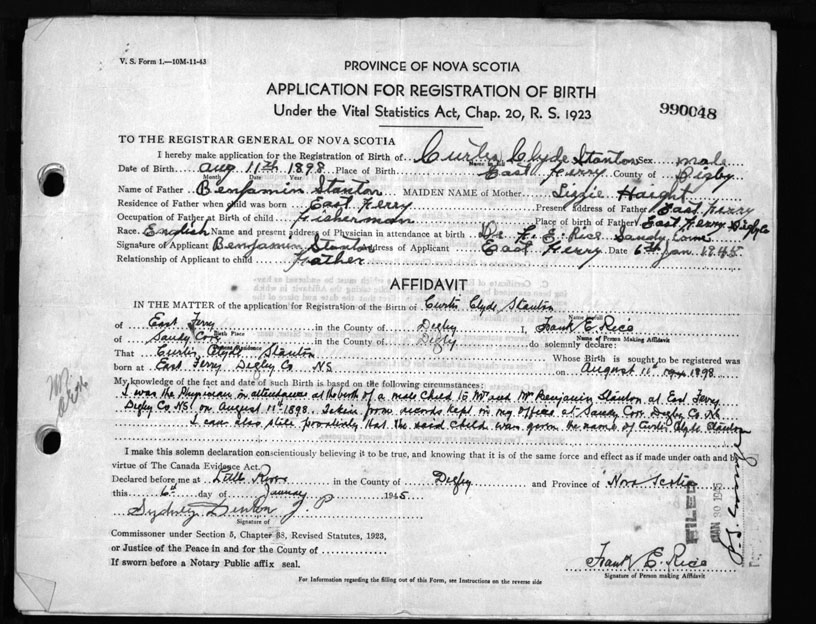 V. S. Form 1.—10M-11-43
PROVINCE OF NOVA SCOTIA
APPLICATION FOR REGISTRATION OF BIRTH
Under the Vital Statistics Act, Chap. 20, R. S. 1923
990048
TO THE REGISTRAR GENERAL OF NOVA SCOTIA
I hereby make application for the Registration of Birth of Curtis Clyde Stanton Sex male
Date of Birth Aug 11th 1898 Place of Birth East Ferry County of Digby
Month Date Year
Name of Father Benjamin Stanton MAIDEN NAME of Mother Lizzie Haight
Residence of Father when child was born East Ferry Present address of Father East Ferry
Occupation of Father at Birth of child Fisherman Place of birth of Father East Ferry Digby Co
Race English Name and present address of Physician in attendance at birth Dr. F. E. Rice Sandy Cove
Signature of Applicant Benjamin Stanton Address of Applicant East Ferry Date 6th Jan 1945
Relationship of Applicant to child Father
AFFIDAVIT
IN THE MATTER of the application for Registration of the Birth of Curtis Clyde Stanton
Name in full
of East Ferry in the County of Digby I, Frank E. Rice
Birth Place Name of Person Making Affidavit
of Sandy Cove in the County of Digby do solemnly declare:
Present Residence
That Curtis Clyde Stanton Whose Birth is sought to be registered was
born at East Ferry Digby Co NS on August 11th 1898
My knowledge of the fact and date of such Birth is based on the following circumstances:
I was the Physician in attendance at the birth of a male child to Mr and Mrs Benjamin Stanton at East Ferry
Digby Co NS on August 11th 1898. Taken from records kept in my office at Sandy Cove Digby Co NS
I can also state positively that the said child was given the name of Curtis Clyde Stanton
I make this solemn declaration conscientiously believing it to be true, and knowing that it is of the same force and effect as if made under oath and by
virtue of The Canada Evidence Act.
Declared before me at Little River in the County of Digby and Province of Nova Scotia
this 6th day of January 1945
Sydney Denton J. P
Signature of
Commissioner under Section 5, Chapter 38, Revised Statutes, 1923,
or Justice of the Peace in and for the County of
If sworn before a Notary Public affix seal.
FILED
JAN 30 1945
Frank E. Rice
Signature of Person making Affidavit
For Information regarding the filling out of this Form, see Instructions on the reverse side